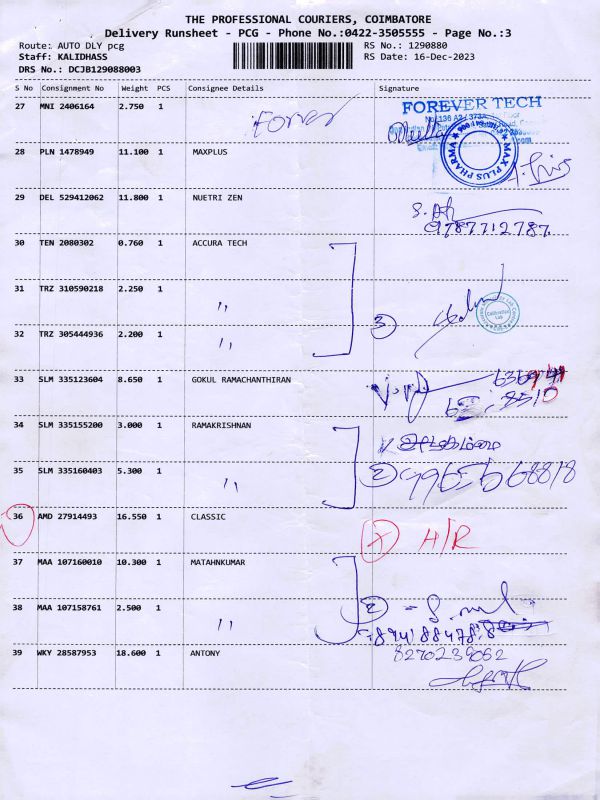 THE PROFESSIONAL COURIERS, COIMBATORE
Delivery Runsheet - PCG - Phone No.:0422-3505555 - Page No.:3
Route: AUTO DLY pcg RS No.: 1290880
Staff: KALIDHASS RS Date: 16-Dec-2023
DRS No.: DCJB129088003
S No Consignment No Weight PCS Consignee Details Signature
27 MNI 2406164 2.750 1 Forever
FOREVER TECH
28 PLN 1478949 11.100 1 MAXPLUS
MAX PLUS PHARMA
29 DEL 529412062 11.800 1 NUETRI ZEN
9787712787
30 TEN 2080302 0.760 1 ACCURA TECH
31 TRZ 310590218 2.250 1 ,,
32 TRZ 305444936 2.200 1 ,, 3
Calibration Lab
33 SLM 335123604 8.650 1 GOKUL RAMACHANTHIRAN
34 SLM 335155200 3.000 1 RAMAKRISHNAN
35 SLM 335160403 5.300 1 ,, 2
36 AMD 27914493 16.550 1 CLASSIC X A/R
37 MAA 107160010 10.300 1 MATAHNKUMAR
38 MAA 107158761 2.500 1 ,, 2
39 WKY 28587953 18.600 1 ANTONY 8270239052